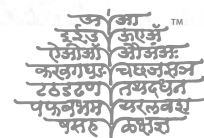 अ आ ™
इ ई उ ऊ ए अॅ
ऐ ओ औ अं अः
क ख ग घ ङ च छ ज झ ञ
ट ठ ड ढ ण त थ द ध न
प फ ब भ म य र ल व श
ष स ह ळ क्ष ज्ञ